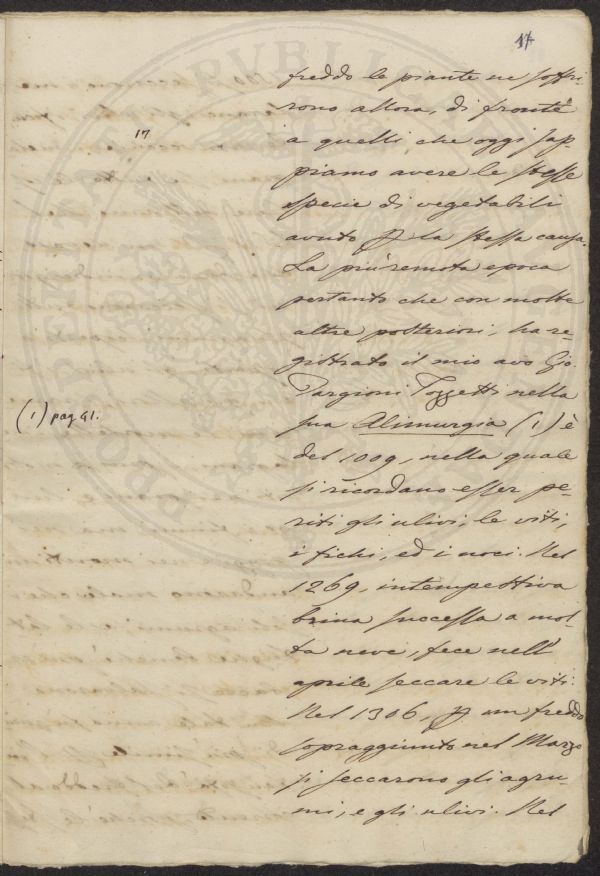 17
freddo le piante ne soffri-
rono allora, di fronte
17
a quelli, che oggi sap-
piamo avere le stesse
specie di vegetabili
avuto p la stessa causa.
La più remota epoca
pertanto che con molte
altre posteriori, ha re-
gistrato il mio avo Gio.
Targioni Tozzetti nella
(1) pag 41.
sua Alimurgia (1) è
del 1009, nella quale
si ricordano esser pe-
riti gli ulivi, le viti,
i fichi, ed i noci. Nel
1269, intempestiva
brina successa a mol-
ta neve, fece nell'
aprile seccare le viti.
Nel 1306, p un freddo
sopraggiunto nel Marzo
si seccarono gli agru-
mi, e gli ulivi. Nel
PRO PVBLIC